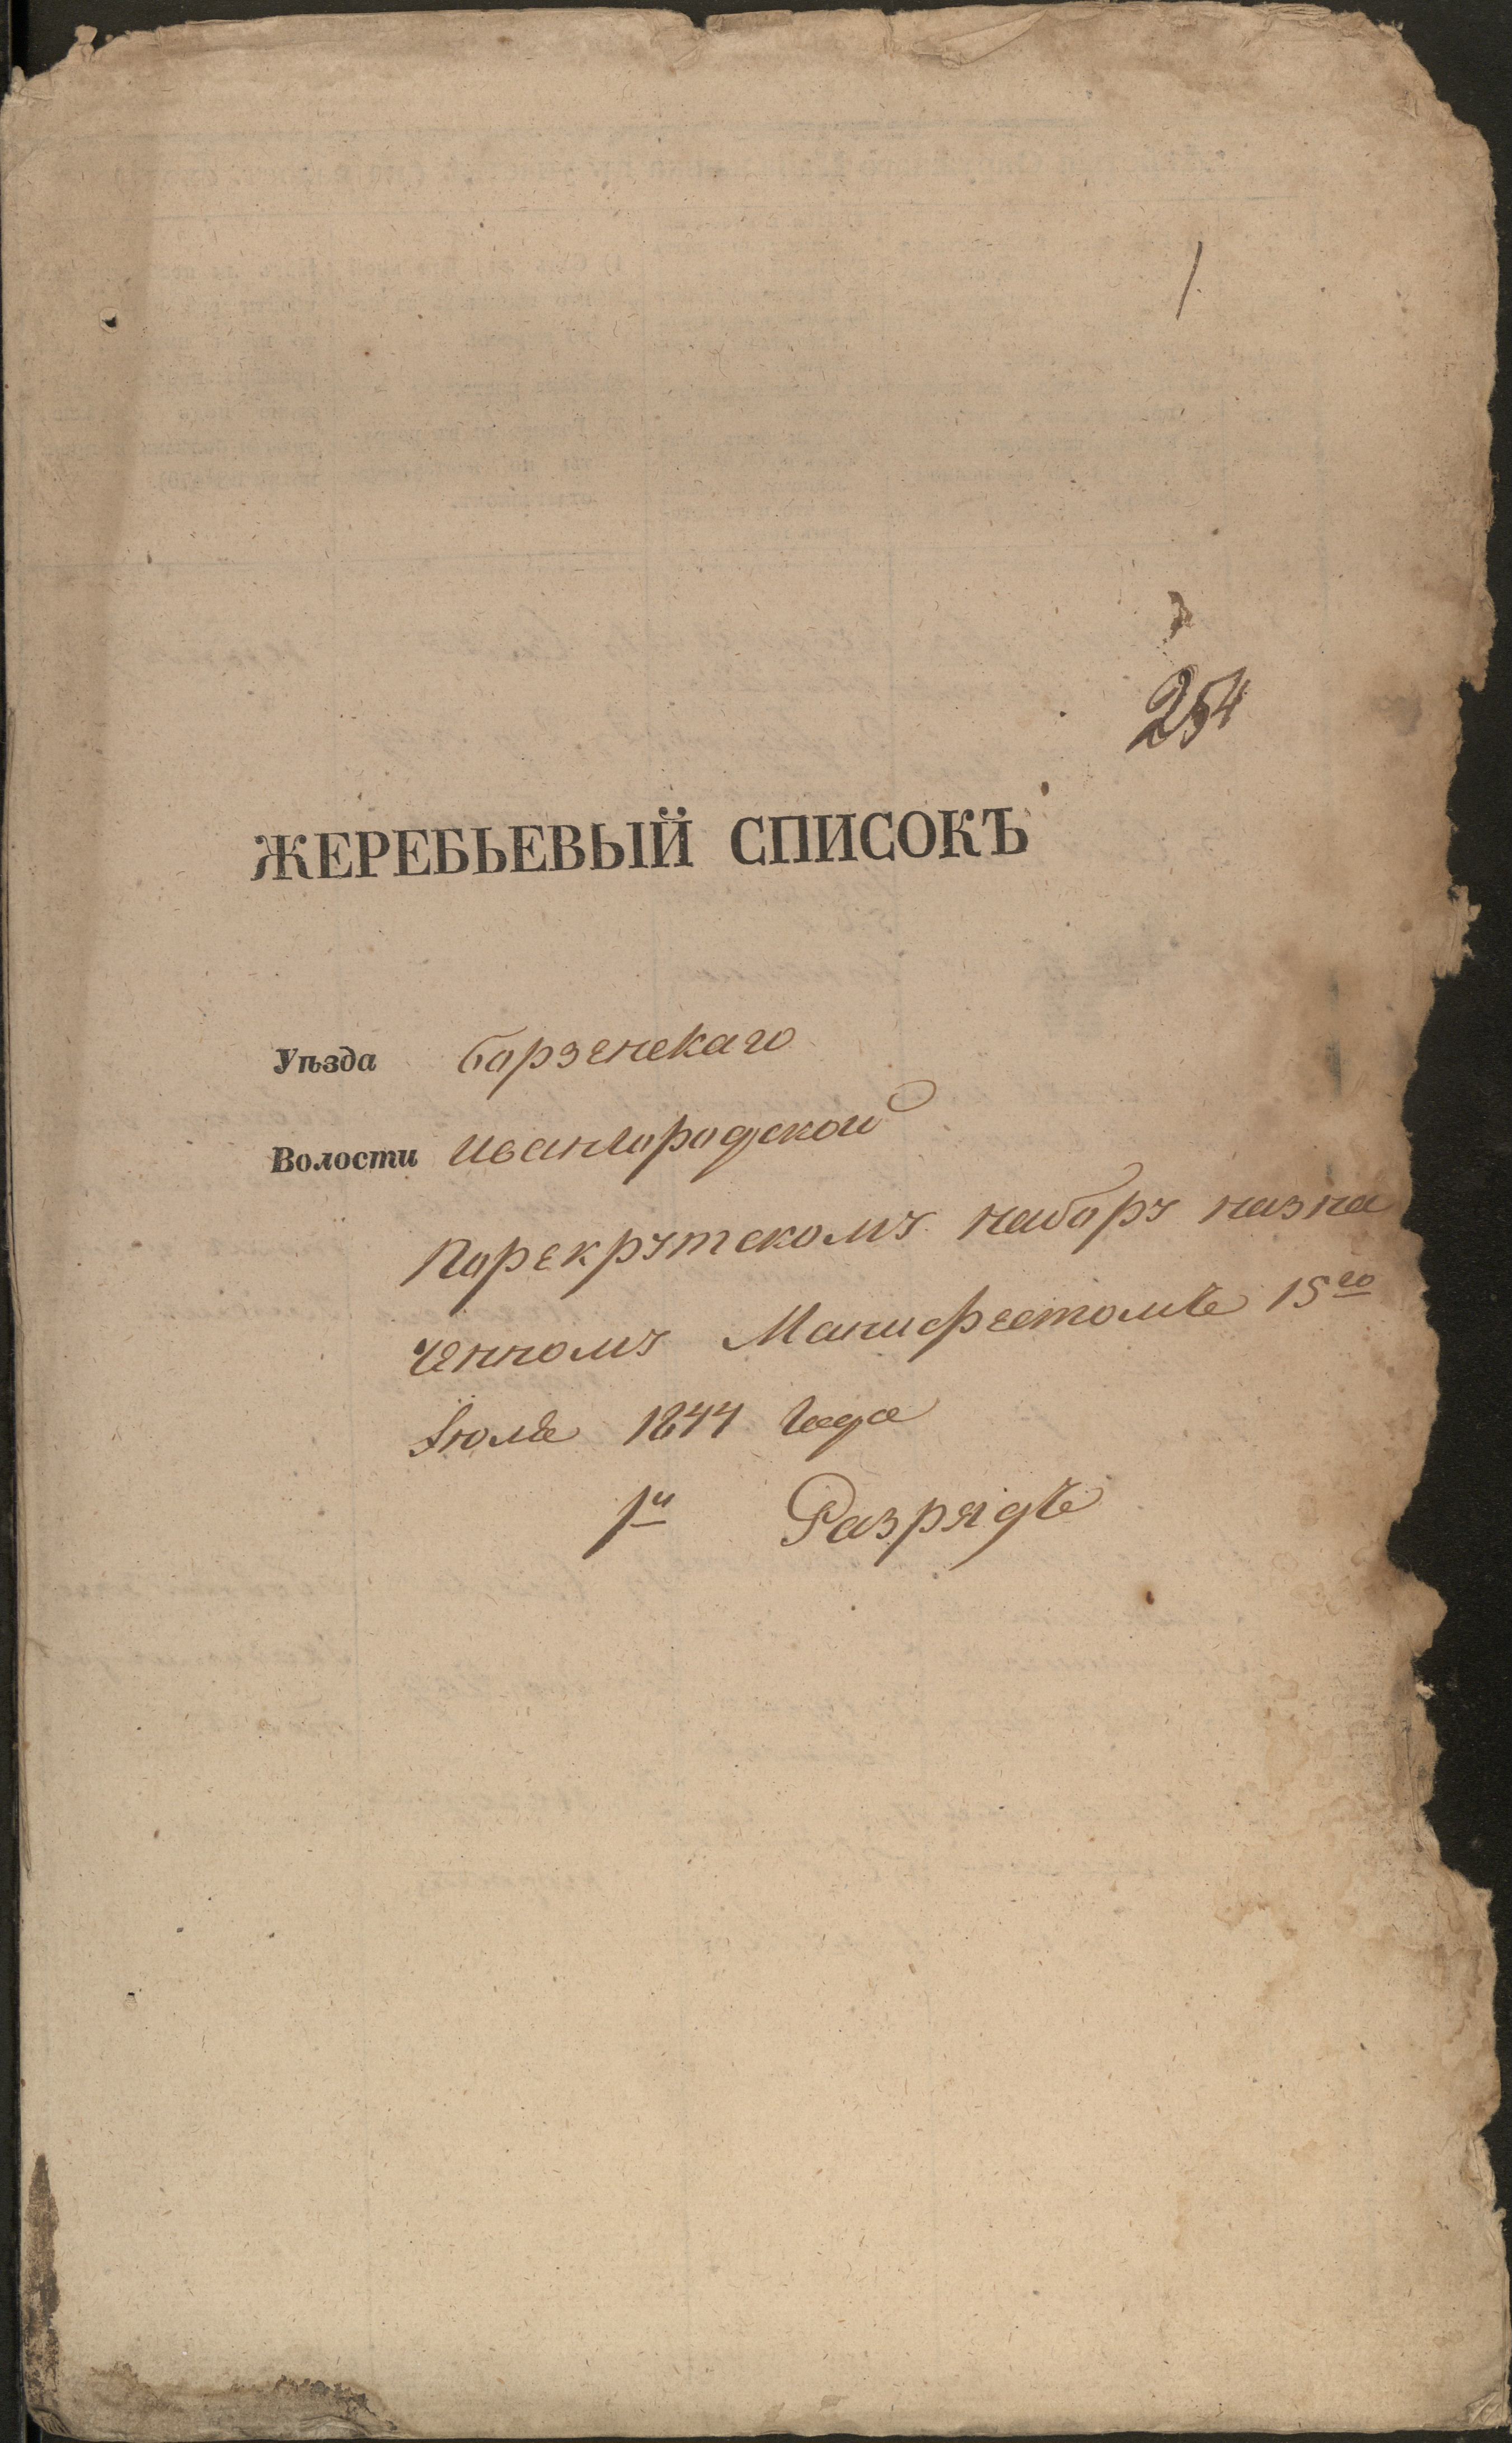 1
254
ЖЕРЕБЬЕВЫЙ СПИСОКЪ
Уѣзда борзенскаго
Волости Ивангородской
Порекрутскому набору назна
ченному Манифестомъ 15го
Іюля 1844 года
1й Разрядъ